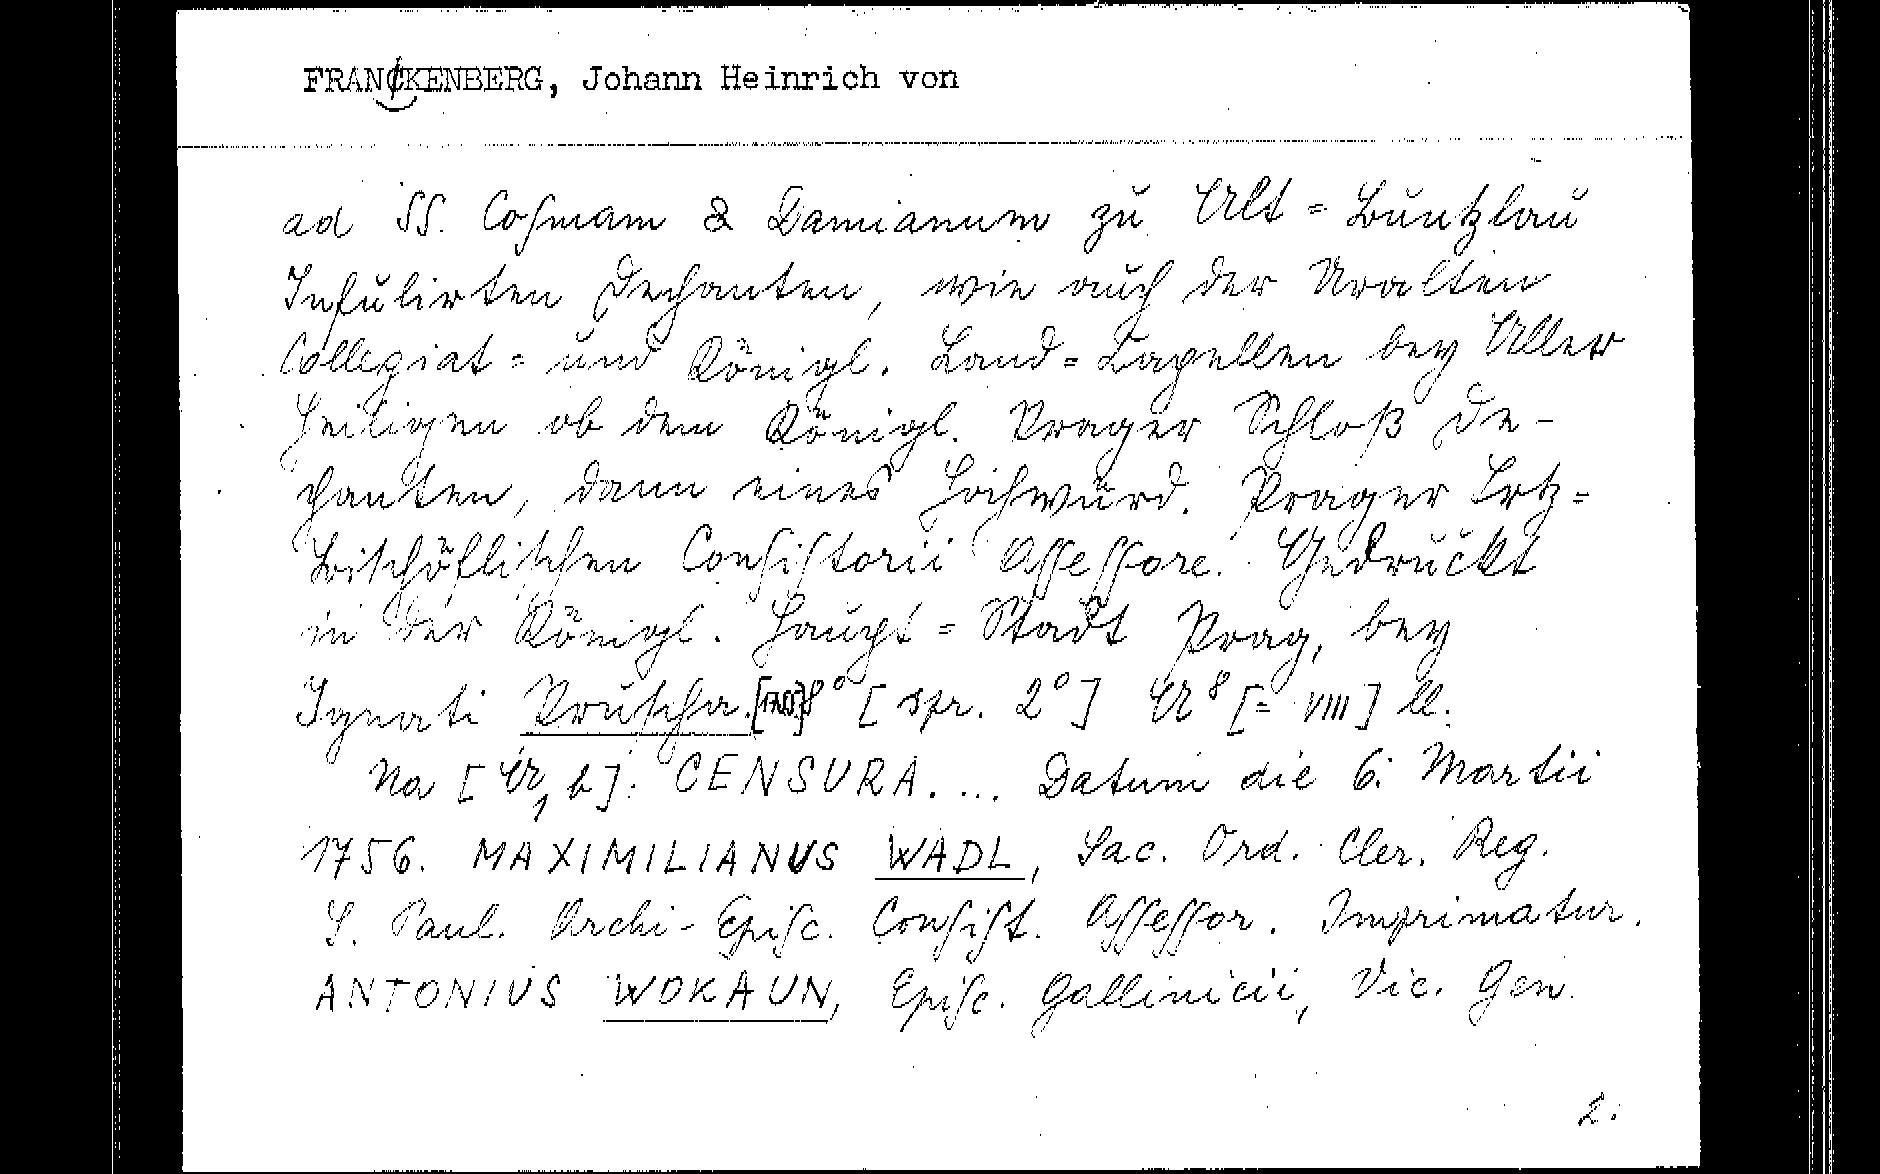 FRANCKENBERG, Johann Heinrich von
ad SS. Coſmam & Damianum zu Alt = Buntzlau
Infulirten Dechanten, wie auch der Uralten
Collegiat = und Königl. Land = Capellen bey Aller
Heiligen ob dem Königl. Prager Schloß De-
chanten, dann eines Hochwürd. Prager Ertz=
Bischöflischen Conſiſtorii Aſſeſſore. Gedruckt
in der Königl. Haupt = Stadt Prag, bey
Ignati Pruscha. 8° [spr. 2°] A⁸ [= VIII] ll.
Na [A₁ b]: CENSURA. ... Datum die 6. Martii
1756. MAXIMILIANUS WADL, Sac. Ord. Cler. Reg.
S. Paul. Archi-Epiſc. Conſiſt. Aſſeſſor. Imprimatur.
ANTONIUS WOKAUN, Epiſc. Gallinicii, Vic. Gen.
2.